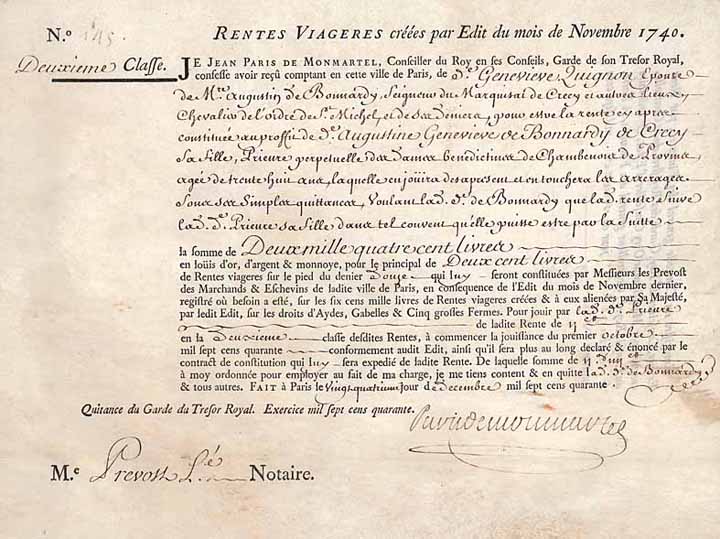 N.º 145 RENTES VIAGERES créées par Edit du mois de Novembre 1740.
Deuxieme Classe. JE JEAN PARIS DE MONMARTEL, Conseiller du Roy en ses Conseils, Garde de son Tresor Royal,
confesse avoir reçû comptant en cette ville de Paris, de D.e Genevieve Quignon Epouse
de M.re Augustin de Bonnardy, Seigneur du Marquisat de Crecy et autres lieux
Chevalier de l'ordre de S.t Michel et de ses deniers, pour estre la rente cy apres
constituée au proffit de D.e Augustine Genevieve de Bonnardy de Crecy
sa fille, Prieure perpetuelle des Dames benedictines de Chambenoist de Provins,
agée de trente huit ans, laquelle en joüira des apresent et en touchera les arrerages
sous ses simples quittances, Voulant lad. D.e de Bonnardy que lad. rente suive
lad. D.e Prieure sa fille dans tel couvent qu'elle puisse estre par la suitte
la somme de Deux mille quatre cent livres
en loüis d'or, d'argent & monnoye, pour le principal de Deux cent livres
de Rentes viageres sur le pied du denier Douze qui luy seront constituées par Messieurs les Prevost
des Marchands & Eschevins de ladite ville de Paris, en consequence de l'Edit du mois de Novembre dernier,
registré où besoin a esté, sur les six cens mille livres de Rentes viageres créées & à eux aliénées par Sa Majesté,
par ledit Edit, sur les droits d'Aydes, Gabelles & Cinq grosses Fermes. Pour joüir par lad. D.e Prieure
de ladite Rente de
en la Deuxieme classe desdites Rentes, à commencer la joüissance du premier octobre
mil sept cens quarante conformement audit Edit, ainsi qu'il sera plus au long declaré & énoncé par le
contract de constitution qui luy sera expedié de ladite Rente. De laquelle somme de
à moy ordonnée pour employer au fait de ma charge, je me tiens content & en quitte lad. D.e de Bonnardy
& tous autres. FAIT à Paris le Vingt quatrieme jour de decembre mil sept cens quarante.
Quitance du Garde du Tresor Royal. Exercice mil sept cens quarante.
Paris de monmartel
M.e Prevost Notaire.